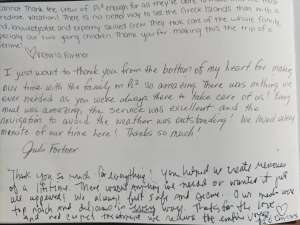 cannot thank the crew of Pi² enough for all they've done to
vacation. There is no better way to see the Greek Islands than with a
knowledgeable and expertly skilled crew. They took care of the whole family,
especially our two young children. Thank you for making this the trip of a
lifetime!
♡ Fortner
I just want to thank you from the bottom of my heart for making
our time with the family on Pi² so amazing. There was nothing we
ever needed as you were always there to take care of us! Every
meal was amazing, the service was excellent and the
navigation to avoid the weather was outstanding! We loved every
minute of our time here! Thanks so much!
Julie Fortner
Thank you so much for everything! You helped us create memories
of a lifetime. There wasn't anything we needed or wanted it just
appeared! We always felt safe and secure. Our meals were
top notch and delicious in every way. Thanks for the love
and
we
the entire